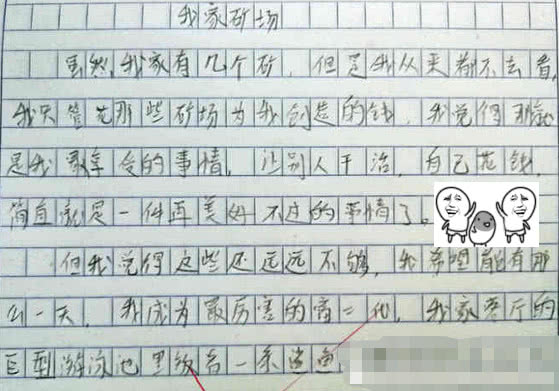 我家矿场
虽然,我家有几个矿,但是我从来都不去看,
我只管花那些矿场为我创造的钱,我觉得那
是我最享受的事情,让别人干活,自己花钱,
简直就是一件再美好不过的事情了。
但我觉得这些还远远不够,我希望能有那
么一天,我成为最厉害的富二代,我家客厅的
巨型游泳池里